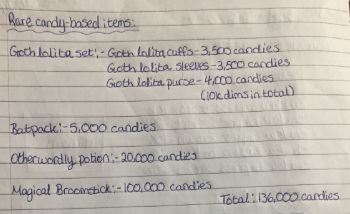 Rare candy-based items:
Goth lolita set:- Goth lolita cuffs - 3,500 candies
Goth lolita sleeves - 3,500 candies
Goth lolita purse - 4,000 candies
(10k dims in total)
Batpack:- 5,000 candies
Otherwordly potion:- 20,000 candies
Magical Broomstick:- 100,000 candies
Total: 136,000 candies